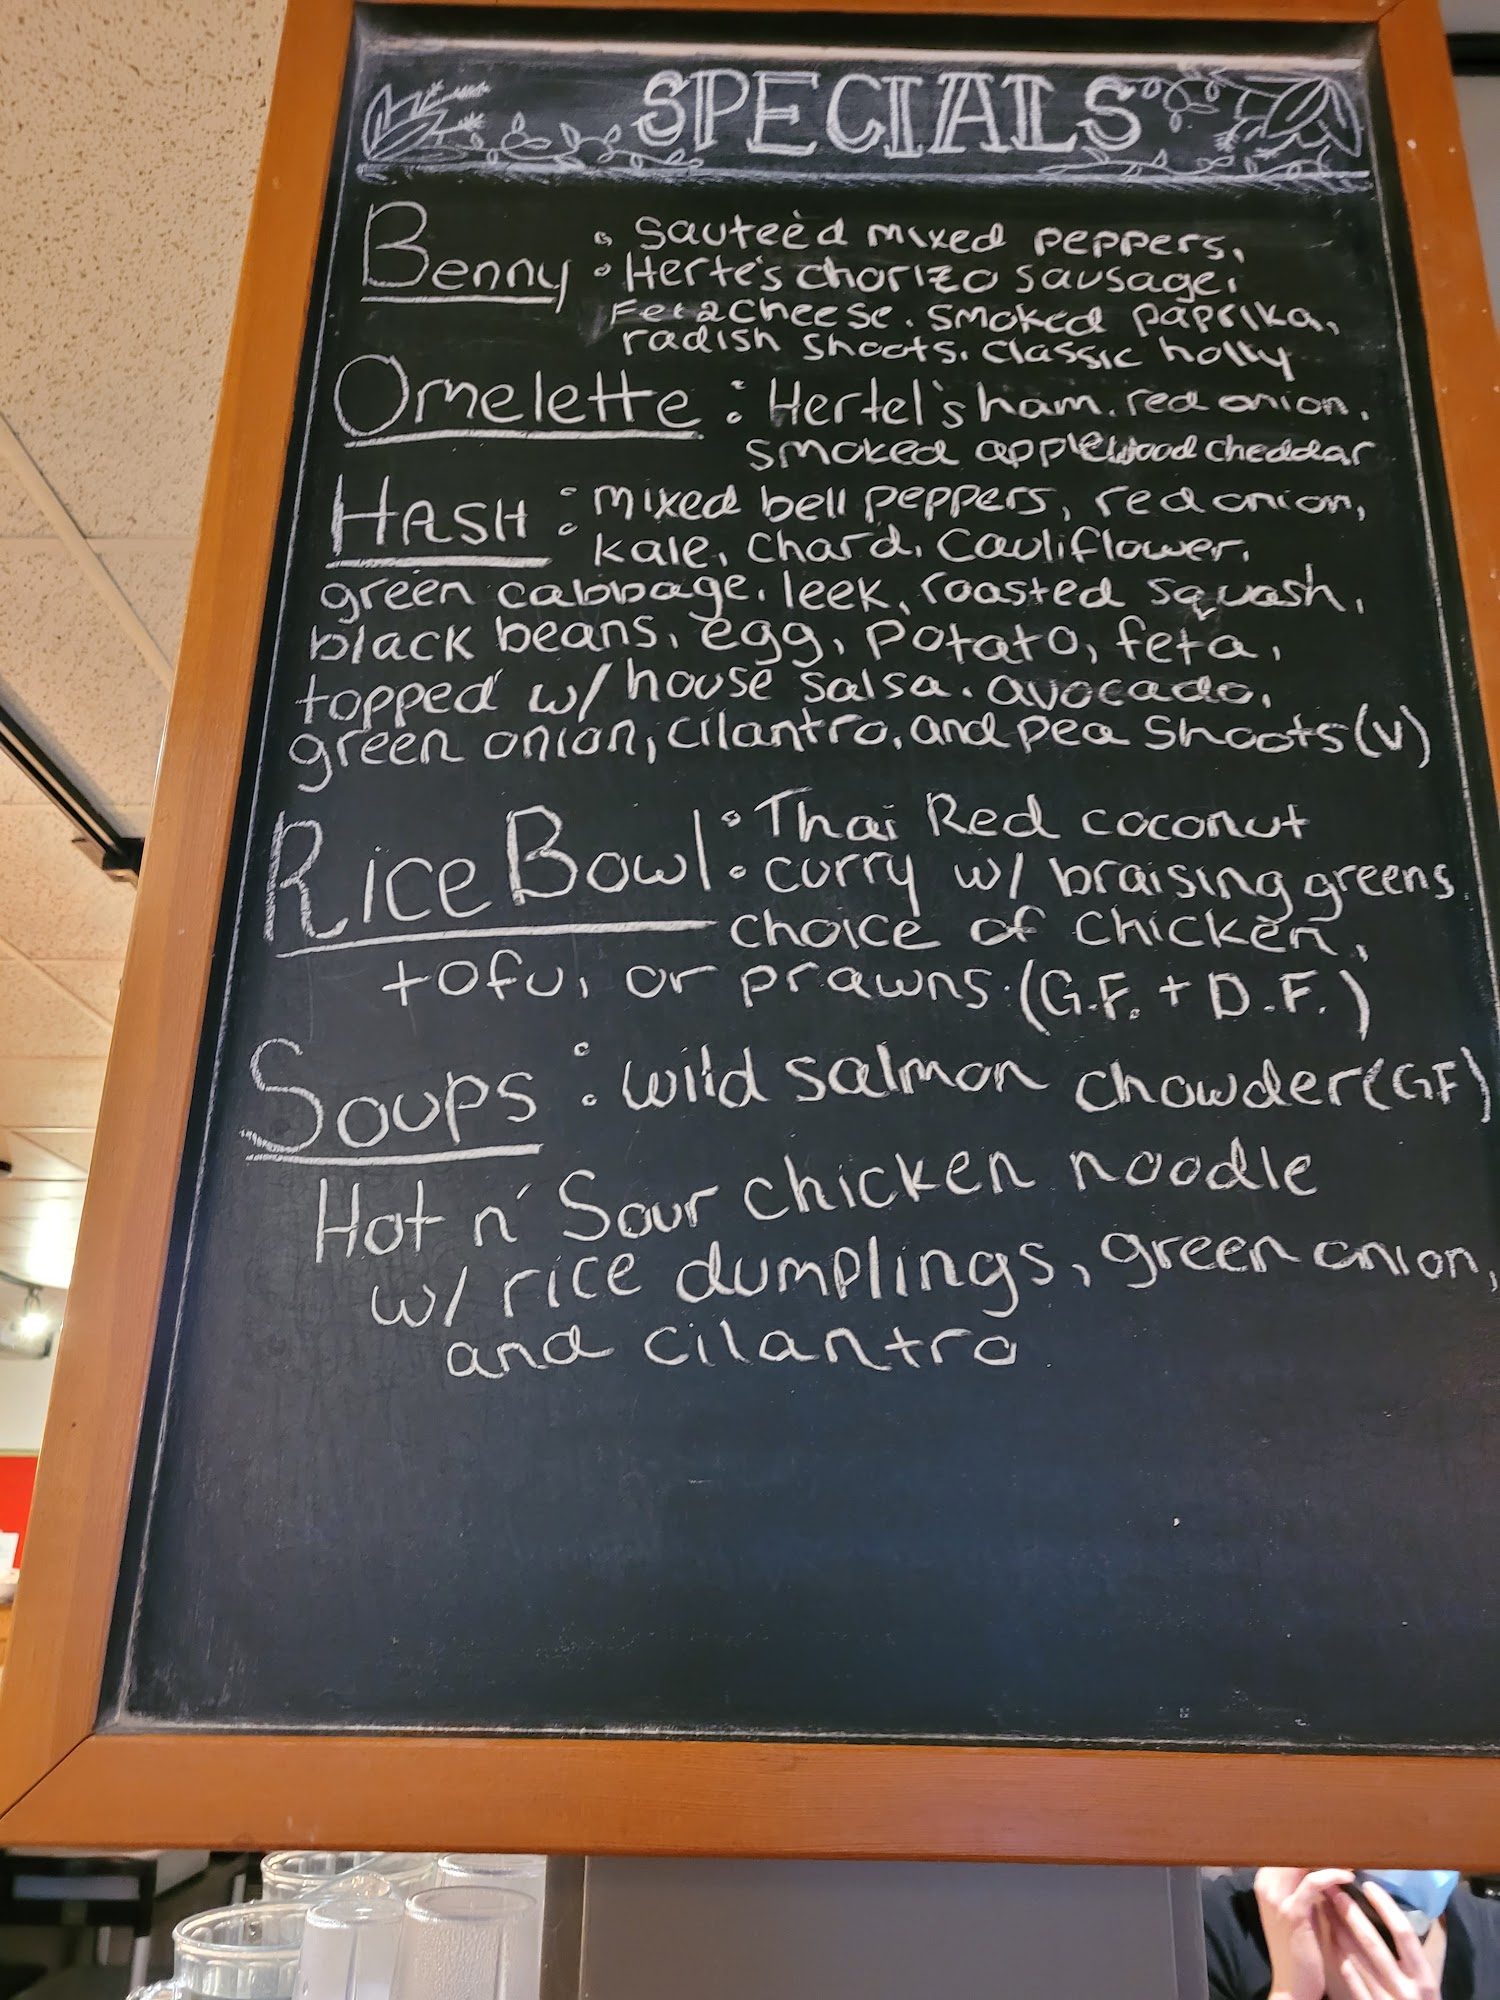 SPECIALS
Benny : Sauteèd mixed peppers,
Herte's chorizo sausage,
Feta cheese, smoked paprika,
radish shoots, classic holly
Omelette : Hertel's ham, red onion,
smoked applewood cheddar
HASH : mixed bell peppers, red onion,
kale, chard, cauliflower,
green cabbage, leek, roasted squash,
black beans, egg, potato, feta,
topped w/ house salsa, avocado,
green onion, cilantro, and pea shoots (V)
Rice Bowl : Thai Red coconut
curry w/ braising greens
choice of chicken,
tofu, or prawns. (G.F. + D.F.)
Soups : wild salmon chowder (GF)
Hot n' Sour chicken noodle
w/ rice dumplings, green onion,
and cilantro